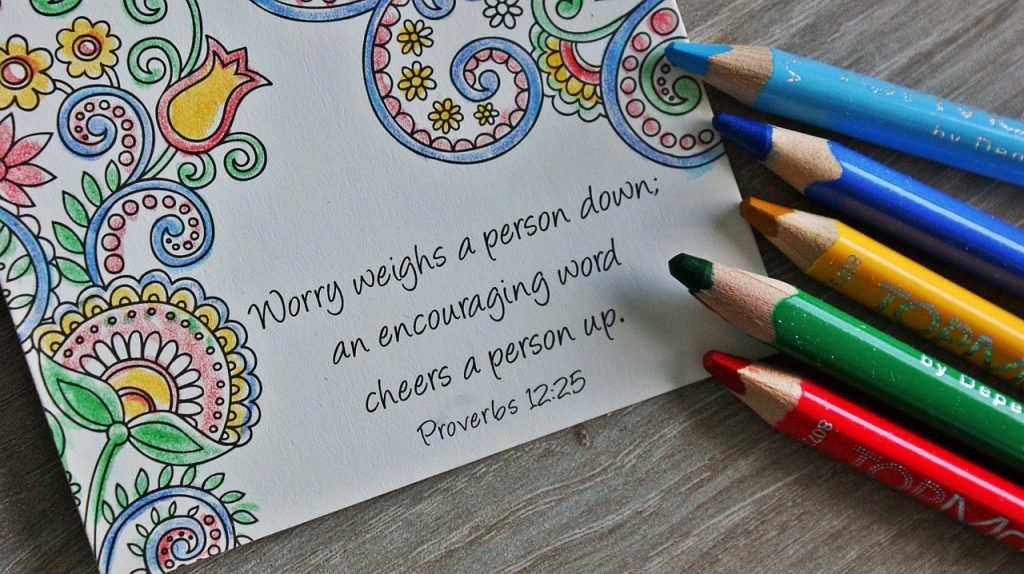 Worry weighs a person down;
an encouraging word
cheers a person up.
Proverbs 12:25
by
by Depe